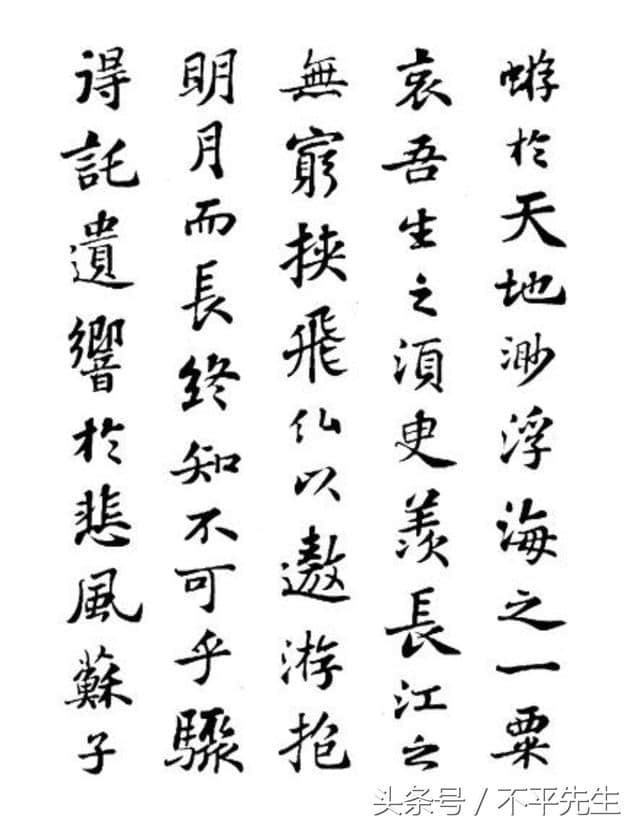 蝣於天地渺浮海之一粟
哀吾生之須臾羨長江之
無窮挾飛仙以遨游抱
明月而長終知不可乎驟
得託遺響於悲風蘇子
头条号 / 不平先生